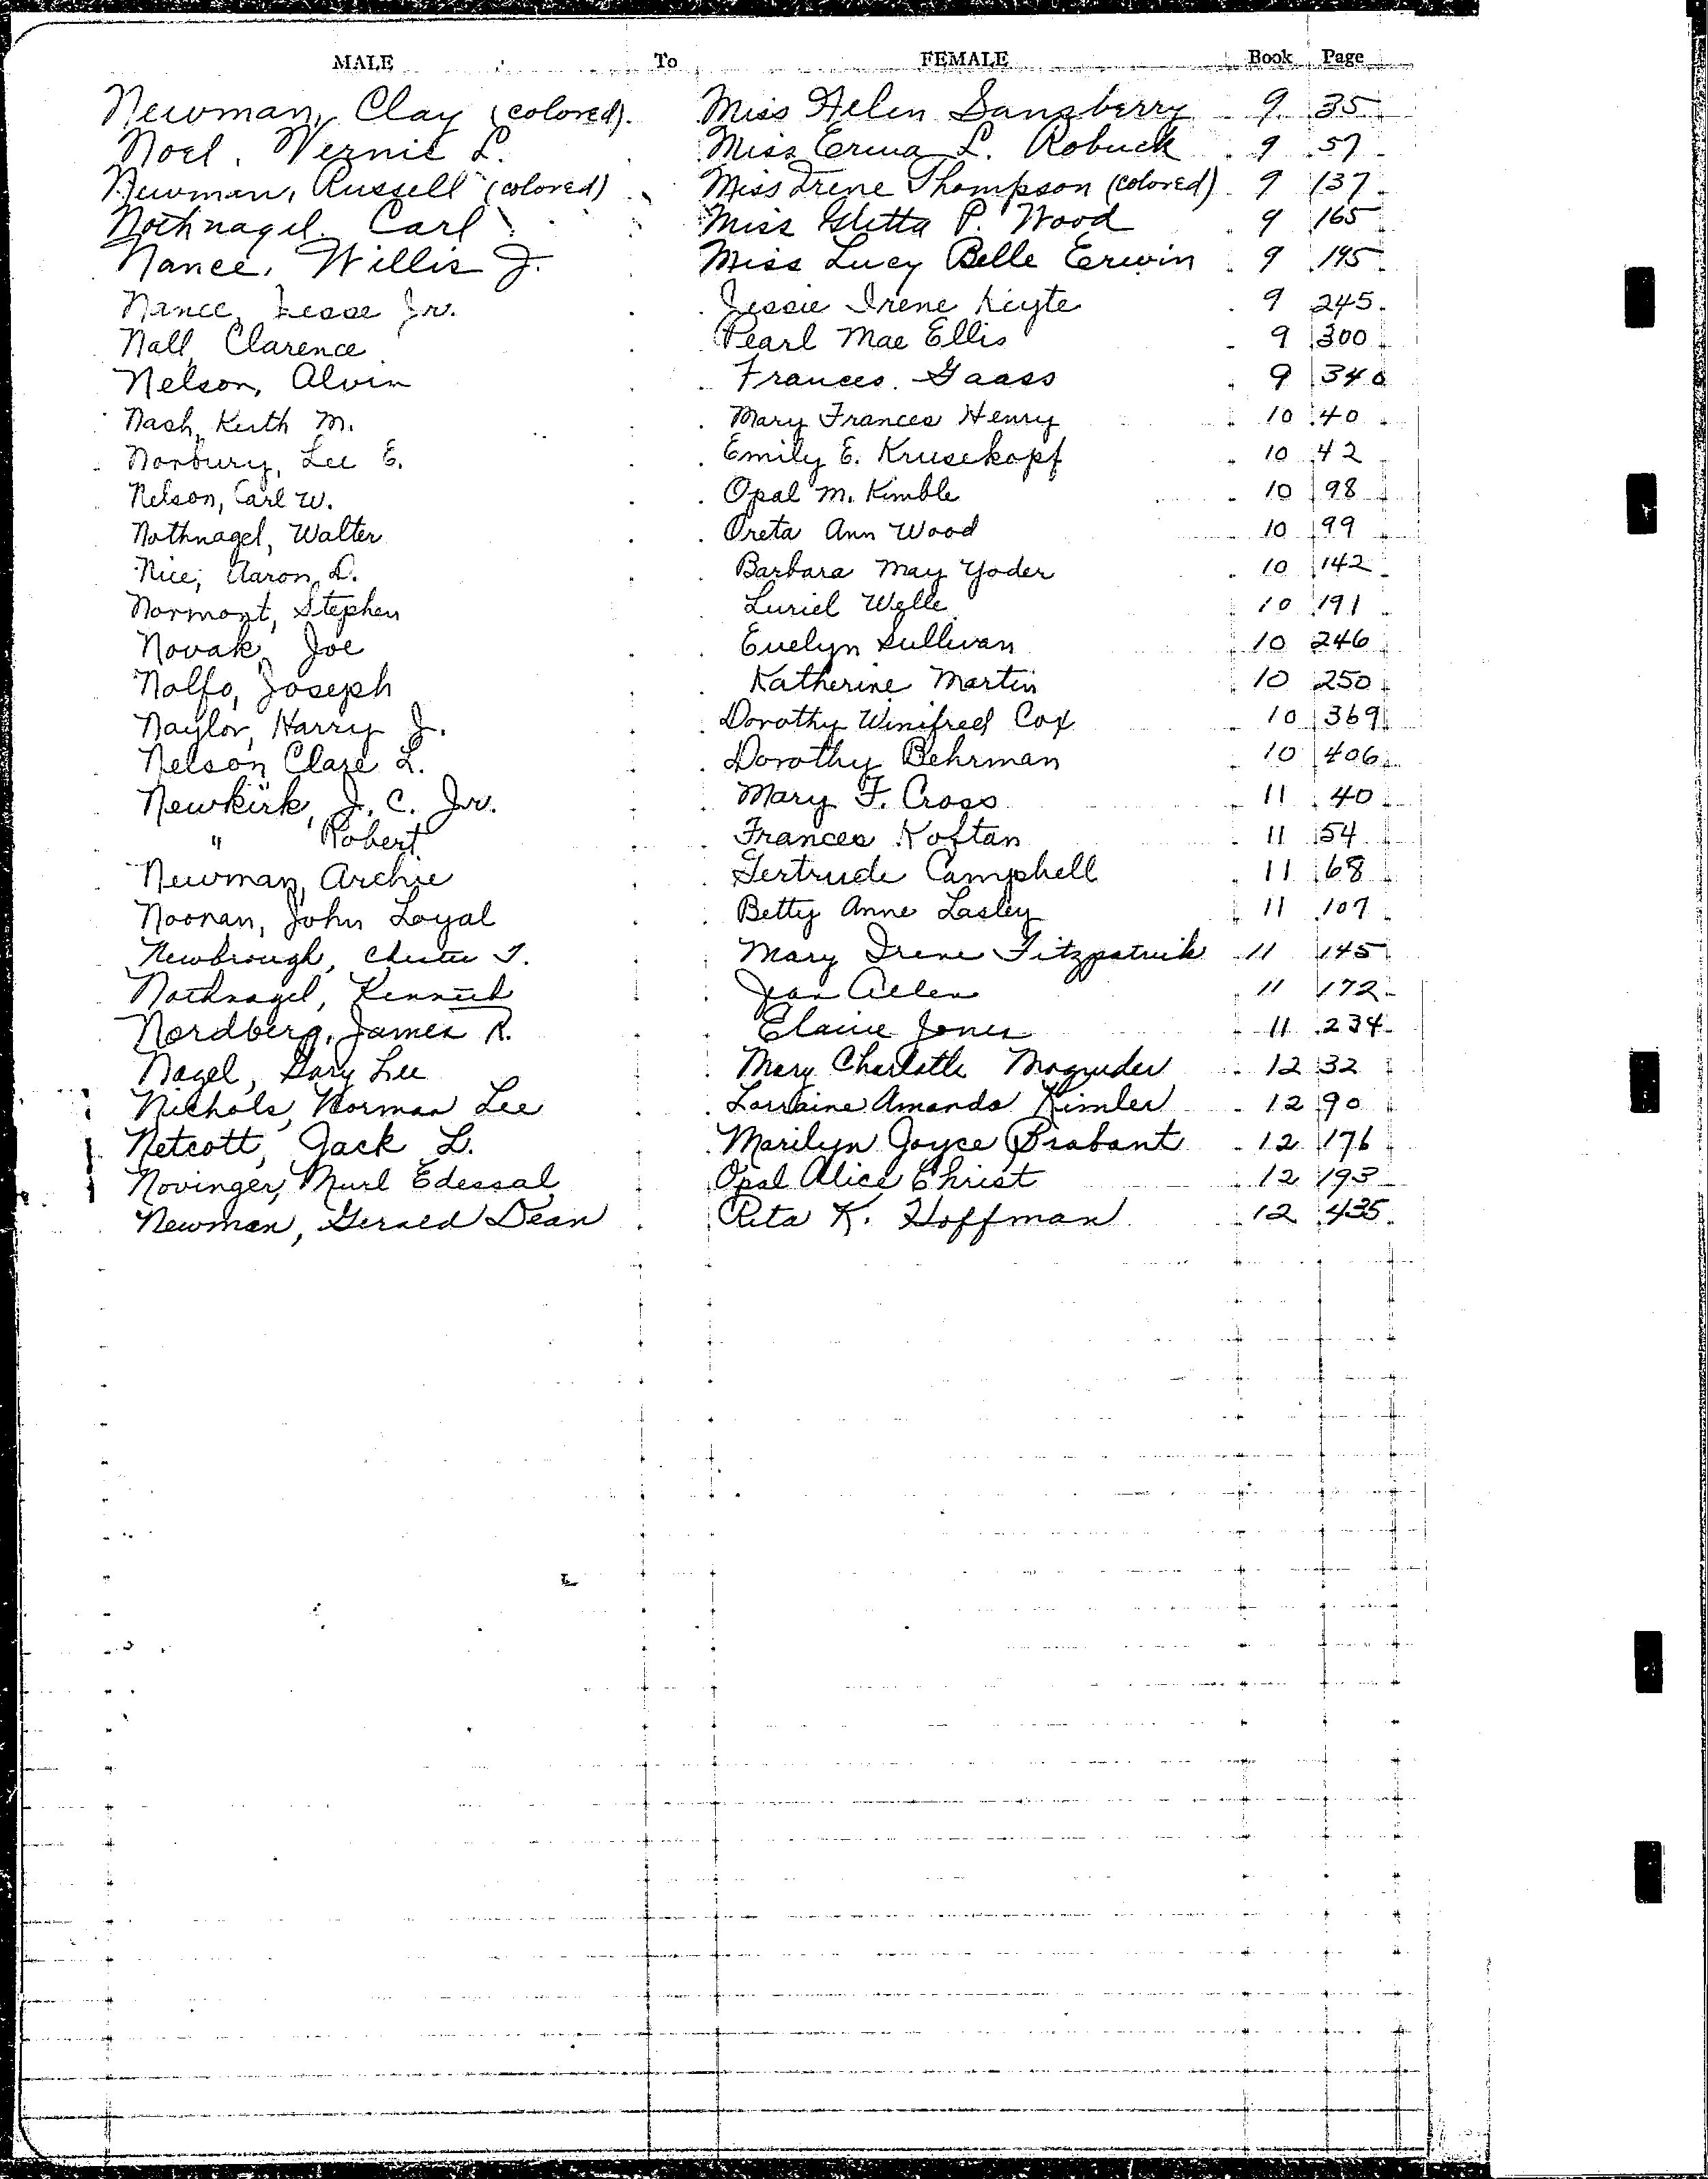 MALE To FEMALE Book Page
Newman, Clay (colored). Miss Helen Sansberry 9 35
Noel, Vernie L. Miss Erma L. Robuck 9 57
Newman, Russell (colored) Miss Irene Thompson (colored) 9 137
Nothnagel, Carl Miss P. Wood 9 165
Nance, Willis J. Miss Lucy Belle Erwin 9 195
Nance, Jesse Jr. Jessie Irene Kiyte 9 245
Nall, Clarence Pearl Mae Ellis 9 300
Nelson, Alvin Frances Gaass 9 340
Nash, Keith M. Mary Frances Henry 10 40
Norbury, Lee E. Emily E. Krusekopf 10 42
Nelson, Carl W. Opal M. Kimble 10 98
Nothnagel, Walter Oreta Ann Wood 10 99
Nice, Aaron D. Barbara May Yoder 10 142
Normont, Stephen Luriel Welle 10 191
Novak, Joe Evelyn Sullivan 10 246
Nolfo, Joseph Katherine Martin 10 250
Naylor, Harry J. Dorothy Winifred Cox 10 369
Nelson Clare L. Dorothy Behrman 10 406
Newkirk, J. C. Jr. Mary F. Cross 11 40
" Robert Frances Koftan 11 54
Newman, Archie Gertrude Campbell 11 68
Noonan, John Loyal Betty Anne Lasley 11 107
Newbrough, Chester T. Mary Irene Fitzpatrick 11 145
Nothnagel, Kenneth Jean Allen 11 172
Nordberg, James R. Elaine Jones 11 234
Nagel, Gary Lee Mary Charlotte Magruder 12 32
Nichols, Norman Lee Lorraine Amanda Kimler 12 90
Netcott, Jack L. Marilyn Joyce Brabant 12 176
Novinger, Murl Edessal Opal Alice Christ 12 193
Newman, Gerald Dean Rita K. Hoffman 12 435